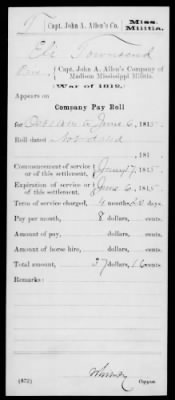 T Capt. John A. Allen's Co. Miss. Militia.
Eli Townsend
Capt. John A. Allen's Company of
Madison Mississippi Militia.
(War of 1812.)
Appears on
Company Pay Roll
for to June 6, 1815.
Roll dated Not dated
, 181
Commencement of service or of this settlement. 7, 1815.
Expiration of service or of this settlement. June 6, 1815.
Term of service charged, 4 months, days.
Pay per month, 8 dollars, cents.
Amount of pay, dollars, cents.
Amount of horse hire, dollars, cents.
Total amount, 37 dollars, 16 cents.
Remarks:
(572) Copyist.